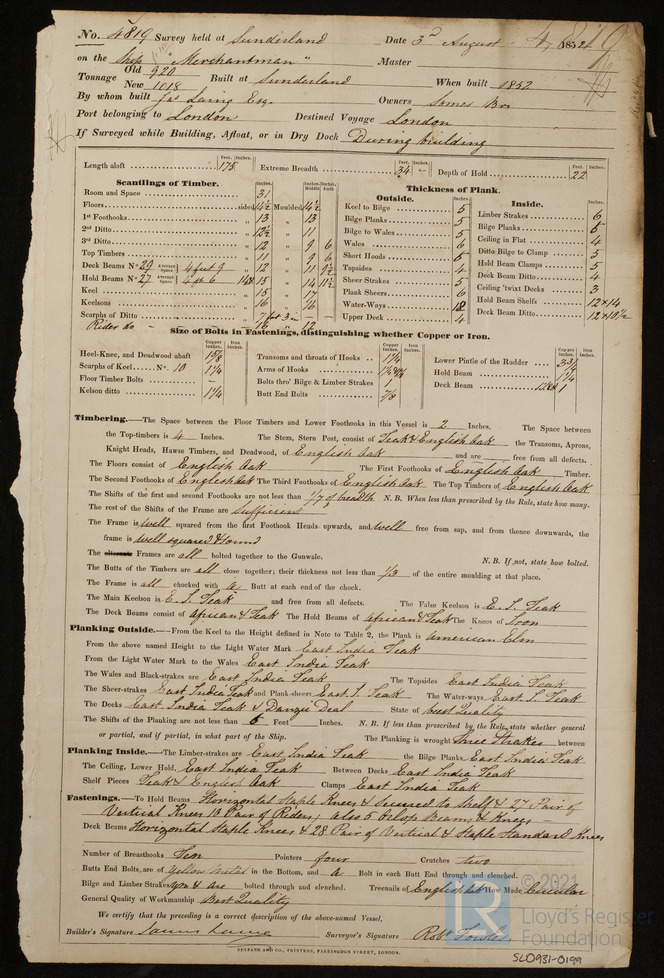 No. 4819 Survey held at Sunderland Date 3d August 1852
on the Ship "Merchantman" Master
Tonnage Old 920 New 1018 Built at Sunderland When built 1852
By whom built Jas Laing Esq. Owners Somes Bros
Port belonging to London Destined Voyage London
If Surveyed while Building, Afloat, or in Dry Dock During building
Length aloft 175 Extreme Breadth 34 - Depth of Hold 22
Scantlings of Timber.
Room and Space 31
Floors sided 14½ Moulded 14½
1st Foothooks 13 " 13
2nd Ditto 12½ " 11
3rd Ditto 12 " 9 6
Top Timbers 11 " 9 6
Deck Beams No. 29 Average Space 4 feet 9 12 " 11 9½
Hold Beams No. 27 Average Space 4 ft 6 15 " 14 11½
Keel 15 " 17
Keelsons 16 " 16
Scarphs of Ditto 7 feet 3 in
Rider do - 16 " 12
Thickness of Plank.
Outside.
Keel to Bilge 5
Bilge Planks 5
Bilge to Wales 5
Wales 6
Short Hoods 5
Topsides 4
Sheer Strakes 5
Plank Sheers 6
Water-Ways 18
Upper Deck 4
Inside.
Limber Strakes 6
Bilge Planks 6
Ceiling in Flat 4
Ditto Bilge to Clamp 5
Hold Beam Clamps 5
Deck Beam Ditto 4
Ceiling 'twixt Decks 3
Hold Beam Shelfs 12 x 14
Deck Beam Ditto 12 x 10½
Size of Bolts in Fastenings, distinguishing whether Copper or Iron.
Heel-Knee, and Deadwood abaft
Scarphs of Keel No. 10 1¼
Floor Timber Bolts -
Kelson ditto 1¼
Transoms and throats of Hooks 1¼
Arms of Hooks
Bolts thro' Bilge & Limber Strakes 1
Butt End Bolts ⅞
Lower Pintle of the Rudder
Hold Beam 1¼
Deck Beam 1
Timbering.—The Space between the Floor Timbers and Lower Foothooks in this Vessel is 2 Inches. The Space between
the Top-timbers is 4 Inches. The Stem, Stern Post, consist of Teak & English Oak the Transoms, Aprons,
Knight Heads, Hawse Timbers, and Deadwood, of English Oak and are free from all defects.
The Floors consist of English Oak The First Foothooks of English Oak Timber.
The Second Foothooks of English Oak The Third Foothooks of English Oak The Top Timbers of English Oak
The Shifts of the first and second Foothooks are not less than 1/7 of breadth N.B. When less than prescribed by the Rule, state how many.
The rest of the Shifts of the Frame are sufficient
The Frame is well squared from the first Foothook Heads upwards, and well free from sap, and from thence downwards, the
frame is well squared & sound
The alternate Frames are all bolted together to the Gunwale. N.B. If not, state how bolted.
The Butts of the Timbers are all close together; their thickness not less than 1/3 of the entire moulding at that place.
The Frame is all chocked with a Butt at each end of the chock.
The Main Keelson is E. I. Teak and free from all defects. The False Keelson is E. I. Teak
The Deck Beams consist of African & Teak The Hold Beams of African & Teak The Knees of Iron
Planking Outside.—From the Keel to the Height defined in Note to Table 2, the Plank is American Elm
From the above named Height to the Light Water Mark East India Teak
From the Light Water Mark to the Wales East India Teak
The Wales and Black-strakes are East India Teak The Topsides East India Teak
The Sheer-strakes East India Teak and Plank-sheers East I. Teak The Water-ways East I. Teak
The Decks East India Teak & Danzic Deal State of best Quality
The Shifts of the Planking are not less than 6 Feet Inches. N.B. If less than prescribed by the Rule, state whether general
or partial, and if partial, in what part of the Ship. The Planking is wrought Three Strakes between
Planking Inside.—The Limber-strakes are East India Teak the Bilge Planks East India Teak
The Ceiling, Lower Hold, East India Teak Between Decks East India Teak
Shelf Pieces Teak & English Oak Clamps East India Teak
Fastenings.—To Hold Beams Horizontal Staple Knees & secured to Shelf & 27 Pair of
Vertical Knees 10 Pair of Riders, also 5 Orlop Beams & Knees
Deck Beams Horizontal Staple Knees & 28 Pair of Vertical & Staple Standard Knees
Number of Breasthooks Ten Pointers four Crutches two
Butts End Bolts, are of Yellow Metal in the Bottom, and a Bolt in each Butt End through and clenched.
Bilge and Limber Strakes are bolted through and clenched. Treenails of English Oak How Made Circular
General Quality of Workmanship Best Quality
We certify that the preceding is a correct description of the above-named Vessel.
Builder's Signature James Laing Surveyor's Signature Robt Fowles
SEYFANG AND CO., PRINTERS, FARRINGDON STREET, LONDON.
© 2021
LR
Lloyd's Register
Foundation
SLD931-0199